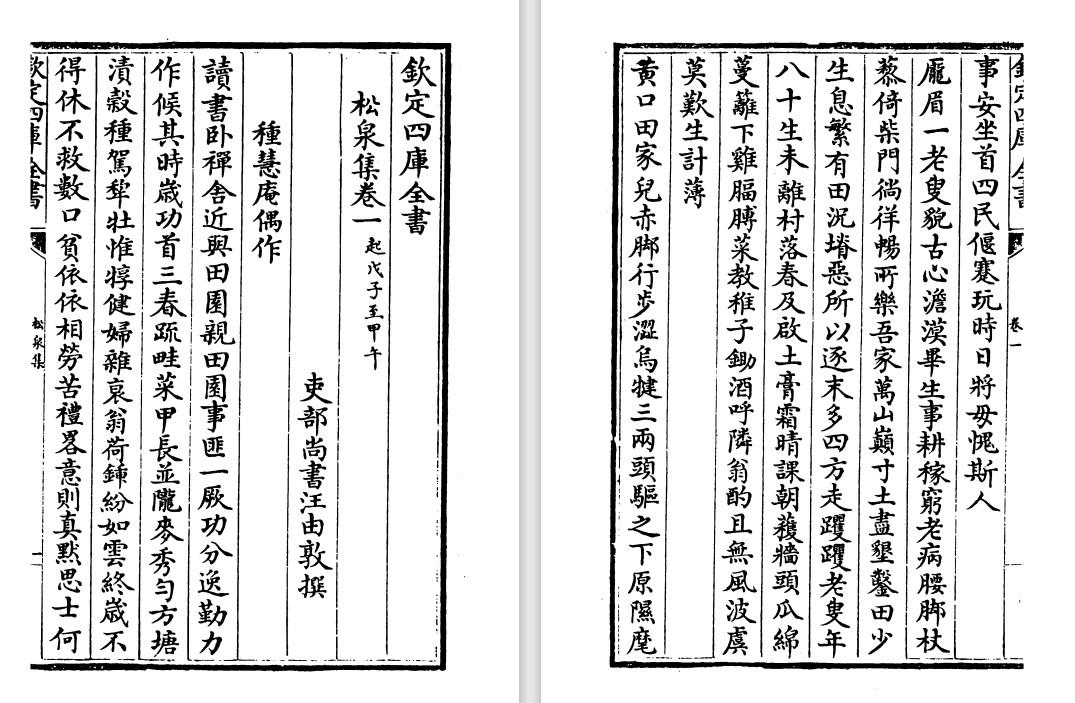 欽定四庫全書
松泉集卷一 起戊子至甲午
吏部尚書汪由敦撰
種慧庵偶作
讀書卧禪舍近與田園親田園事匪一厥功分逸勤力
作候其時歲功首三春疏畦菜甲長並隴麥秀勻方塘
漬穀種駕犂牡惟犉健婦雜衰翁荷鍤紛如雲終歲不
得休不救數口貧依依相勞苦禮畧意則真默思士何
欽定四庫全書 松泉集 一
卷一
事安坐首四民偃蹇玩時日將毋愧斯人
龎眉一老叟貌古心澹漠畢生事耕稼窮老病腰脚杖
藜倚柴門徜徉暢所樂吾家萬山巔寸土盡墾鑿田少
生息繁有田況塉惡所以逐末多四方走躩躩老叟年
八十生未離村落春及啟土膏霜晴課朝穫牆頭瓜綿
蔓籬下雞腷膊菜教稚子鋤酒呼隣翁酌且無風波虞
莫歎生計薄
黄口田家兒赤脚行步澀烏犍三兩頭驅之下原隰麾